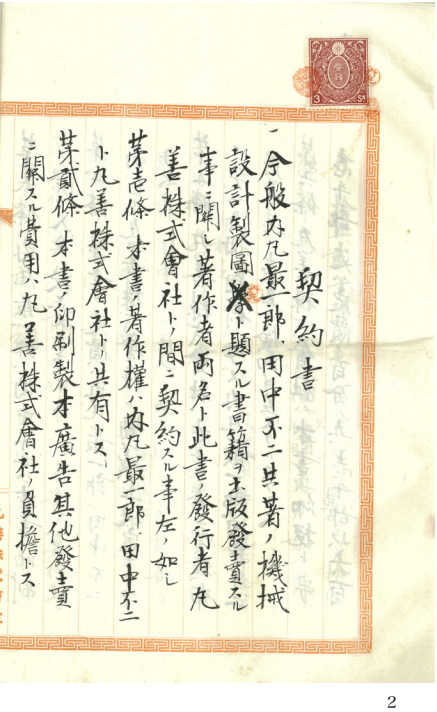 契約書
一 今般内丸最一郎、田中不二共著ノ機械
設計製圖ト題スル書籍ヲ出版發賣スル
事ニ関シ著作者両名ト此書ノ發行者丸
善株式會社トノ間ニ契約スル事左ノ如シ
第壱條 本書ノ著作權ハ内丸最一郎、田中不二
ト丸善株式會社トノ共有トス
第貳條 本書ノ印刷製本廣告其他發賣
ニ關スル費用ハ丸善株式會社ノ負擔トス
3 Sn
2